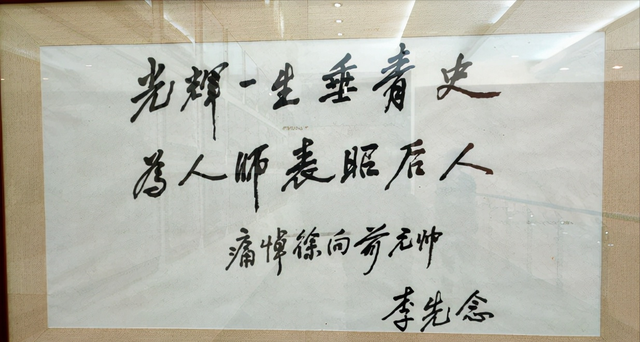 光辉一生垂青史
为人师表昭后人
痛悼徐向前元帅
李先念